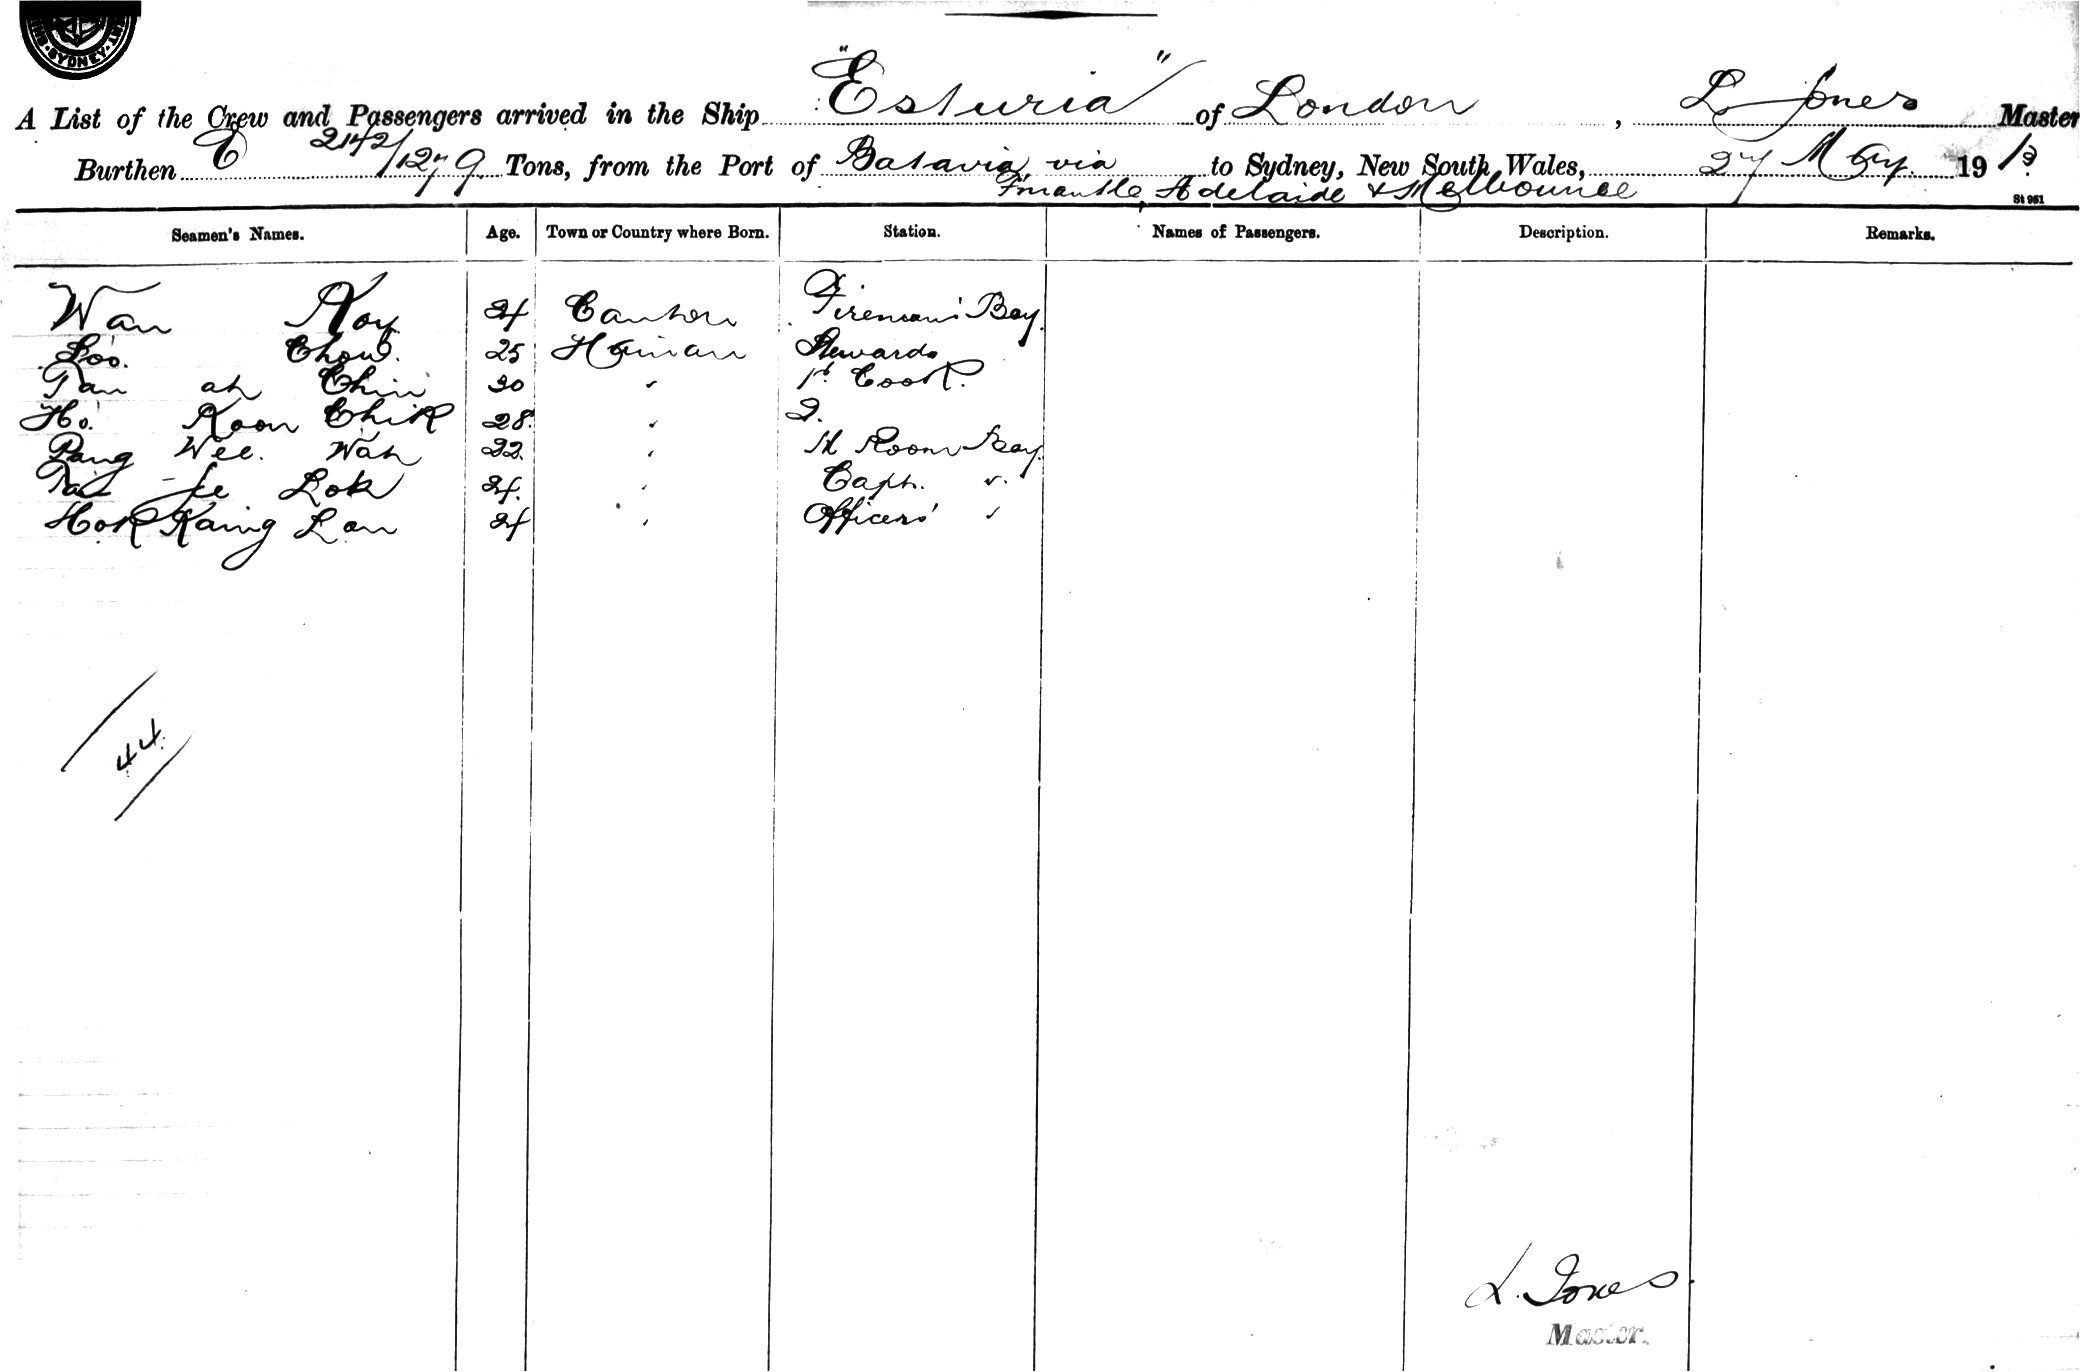 SYDNEY
A List of the Crew and Passengers arrived in the Ship "Esturia" of London, L. Jones Master
Burthen 2142/1279 Tons, from the Port of Batavia via to Sydney, New South Wales, 27 May 1913
Fmantle, Adelaide & Melbourne
St 961
Seamen's Names. Age. Town or Country where Born. Station. Names of Passengers. Description. Remarks.
Wan Koy 24 Canton Fireman's Boy.
Loo. Chow. 25 Hainan Steward
Tan ah Chin 30 " 1st Cook.
Ho. Koon Chik 28. " 2.
Pang Wee. Wah 22. " M Room Boy.
Tai Jee Lok 24. " Capt. "
Hok Kaing Lan 24 " Officers' "
44
L. Jones.
Master.